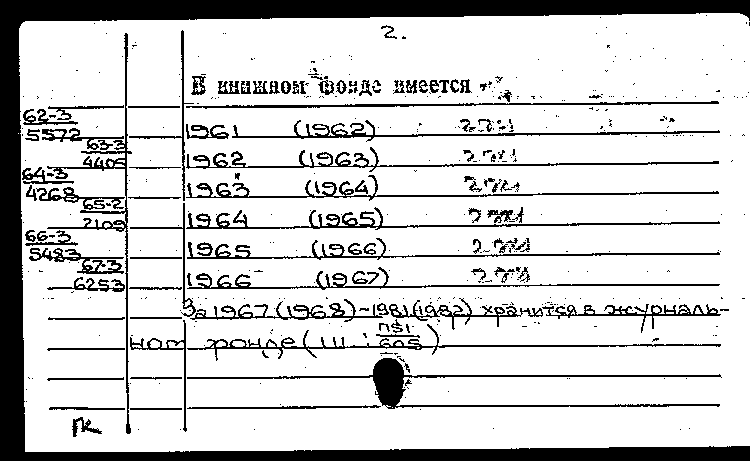 2.
В книжном фонде имеется
62-3
5572
1961 (1962) 2 экз
63-3
4405
1962 (1963) 2 экз
64-3
4268
1963 (1964) 2 экз
65-2
2109
1964 (1965) 2 экз
66-3
5483
1965 (1966) 2 экз
67-3
6253
1966 (1967) 2 экз
За 1967 (1968)-1981 (1982) хранится в журналь-
ном фонде (Ш : П51/605)
ГК